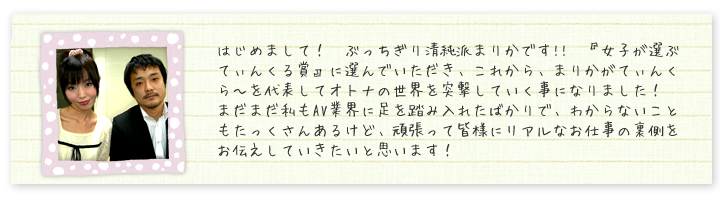 はじめまして！　ぶっちぎり清純派まりかです!!　『女子が選ぶ
てぃんくる賞』に選んでいただき、これから、まりかがてぃんく
ら〜を代表してオトナの世界を突撃していく事になりました！
まだまだ私もAV業界に足を踏み入れたばかりで、わからないこと
もたっくさんあるけど、頑張って皆様にリアルなお仕事の裏側を
お伝えしていきたいと思います！